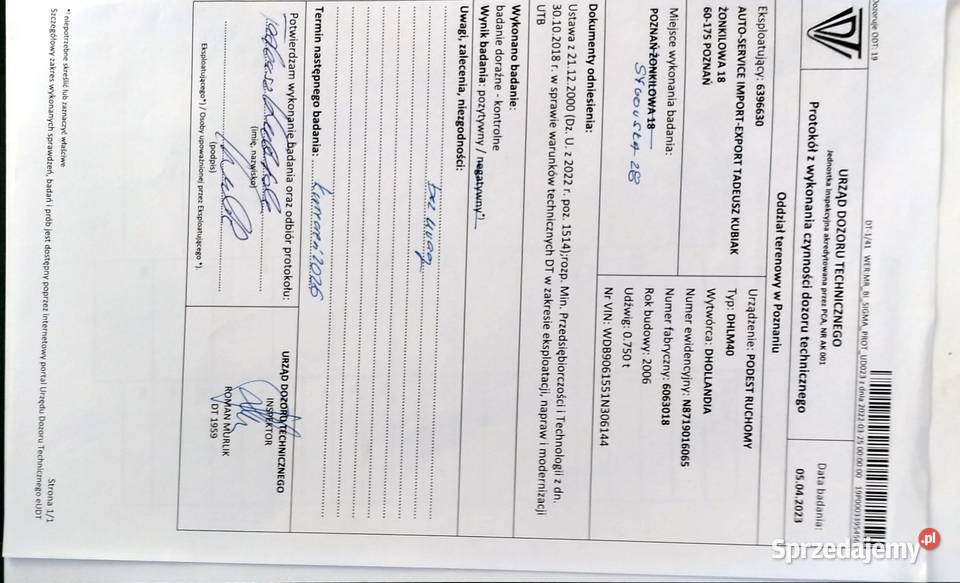 Dozoruje ODT: 19
DT-1/41 WER.MR_BI_SIGMA_PROT_UD023 z dnia 2022-03-25 00:00:00
URZĄD DOZORU TECHNICZNEGO
Jednostka Inspekcyjna akredytowana przez PCA, NR AK 001
Protokół z wykonania czynności dozoru technicznego
Data badania:
05.04.2023
Oddział terenowy w Poznaniu
Eksploatujący: 6396630
AUTO-SERVICE IMPORT-EXPORT TADEUSZ KUBIAK
ŻONKILOWA 18
60-175 POZNAŃ
Miejsce wykonania badania:
POZNAŃ ŻONKILOWA 18
Urządzenie: PODEST RUCHOMY
Typ: DHLM40
Wytwórca: DHOLLANDIA
Numer ewidencyjny: N8719016065
Numer fabryczny: 6063018
Rok budowy: 2006
Udźwig: 0.750 t
Nr VIN: WDB9061551N306144
Dokumenty odniesienia:
Ustawa z 21.12.2000 (Dz. U. z 2022 r. poz. 1514);rozp. Min. Przedsiębiorczości i Technologii z dn.
30.10.2018 r. w sprawie warunków technicznych DT w zakresie eksploatacji, napraw i modernizacji
UTB
Wykonano badanie:
badanie doraźne - kontrolne
Wynik badania: pozytywny / negatywny*)
Uwagi, zalecenia, niezgodności:
bez uwag
Termin następnego badania: kwiecień 2026
Potwierdzam wykonanie badania oraz odbiór protokołu:
(imię, nazwisko)
(podpis)
Eksploatującego*) / Osoby upoważnionej przez Eksploatującego *).
URZĄD DOZORU TECHNICZNEGO
INSPEKTOR
ROMAN MURLIK
DT 1959
*) niepotrzebne skreślić lub zaznaczyć właściwe
Szczegółowy zakres wykonanych sprawdzeń, badań i prób jest dostępny poprzez internetowy portal Urzędu Dozoru Technicznego eUDT
Strona 1/1
Sprzedajemy.pl